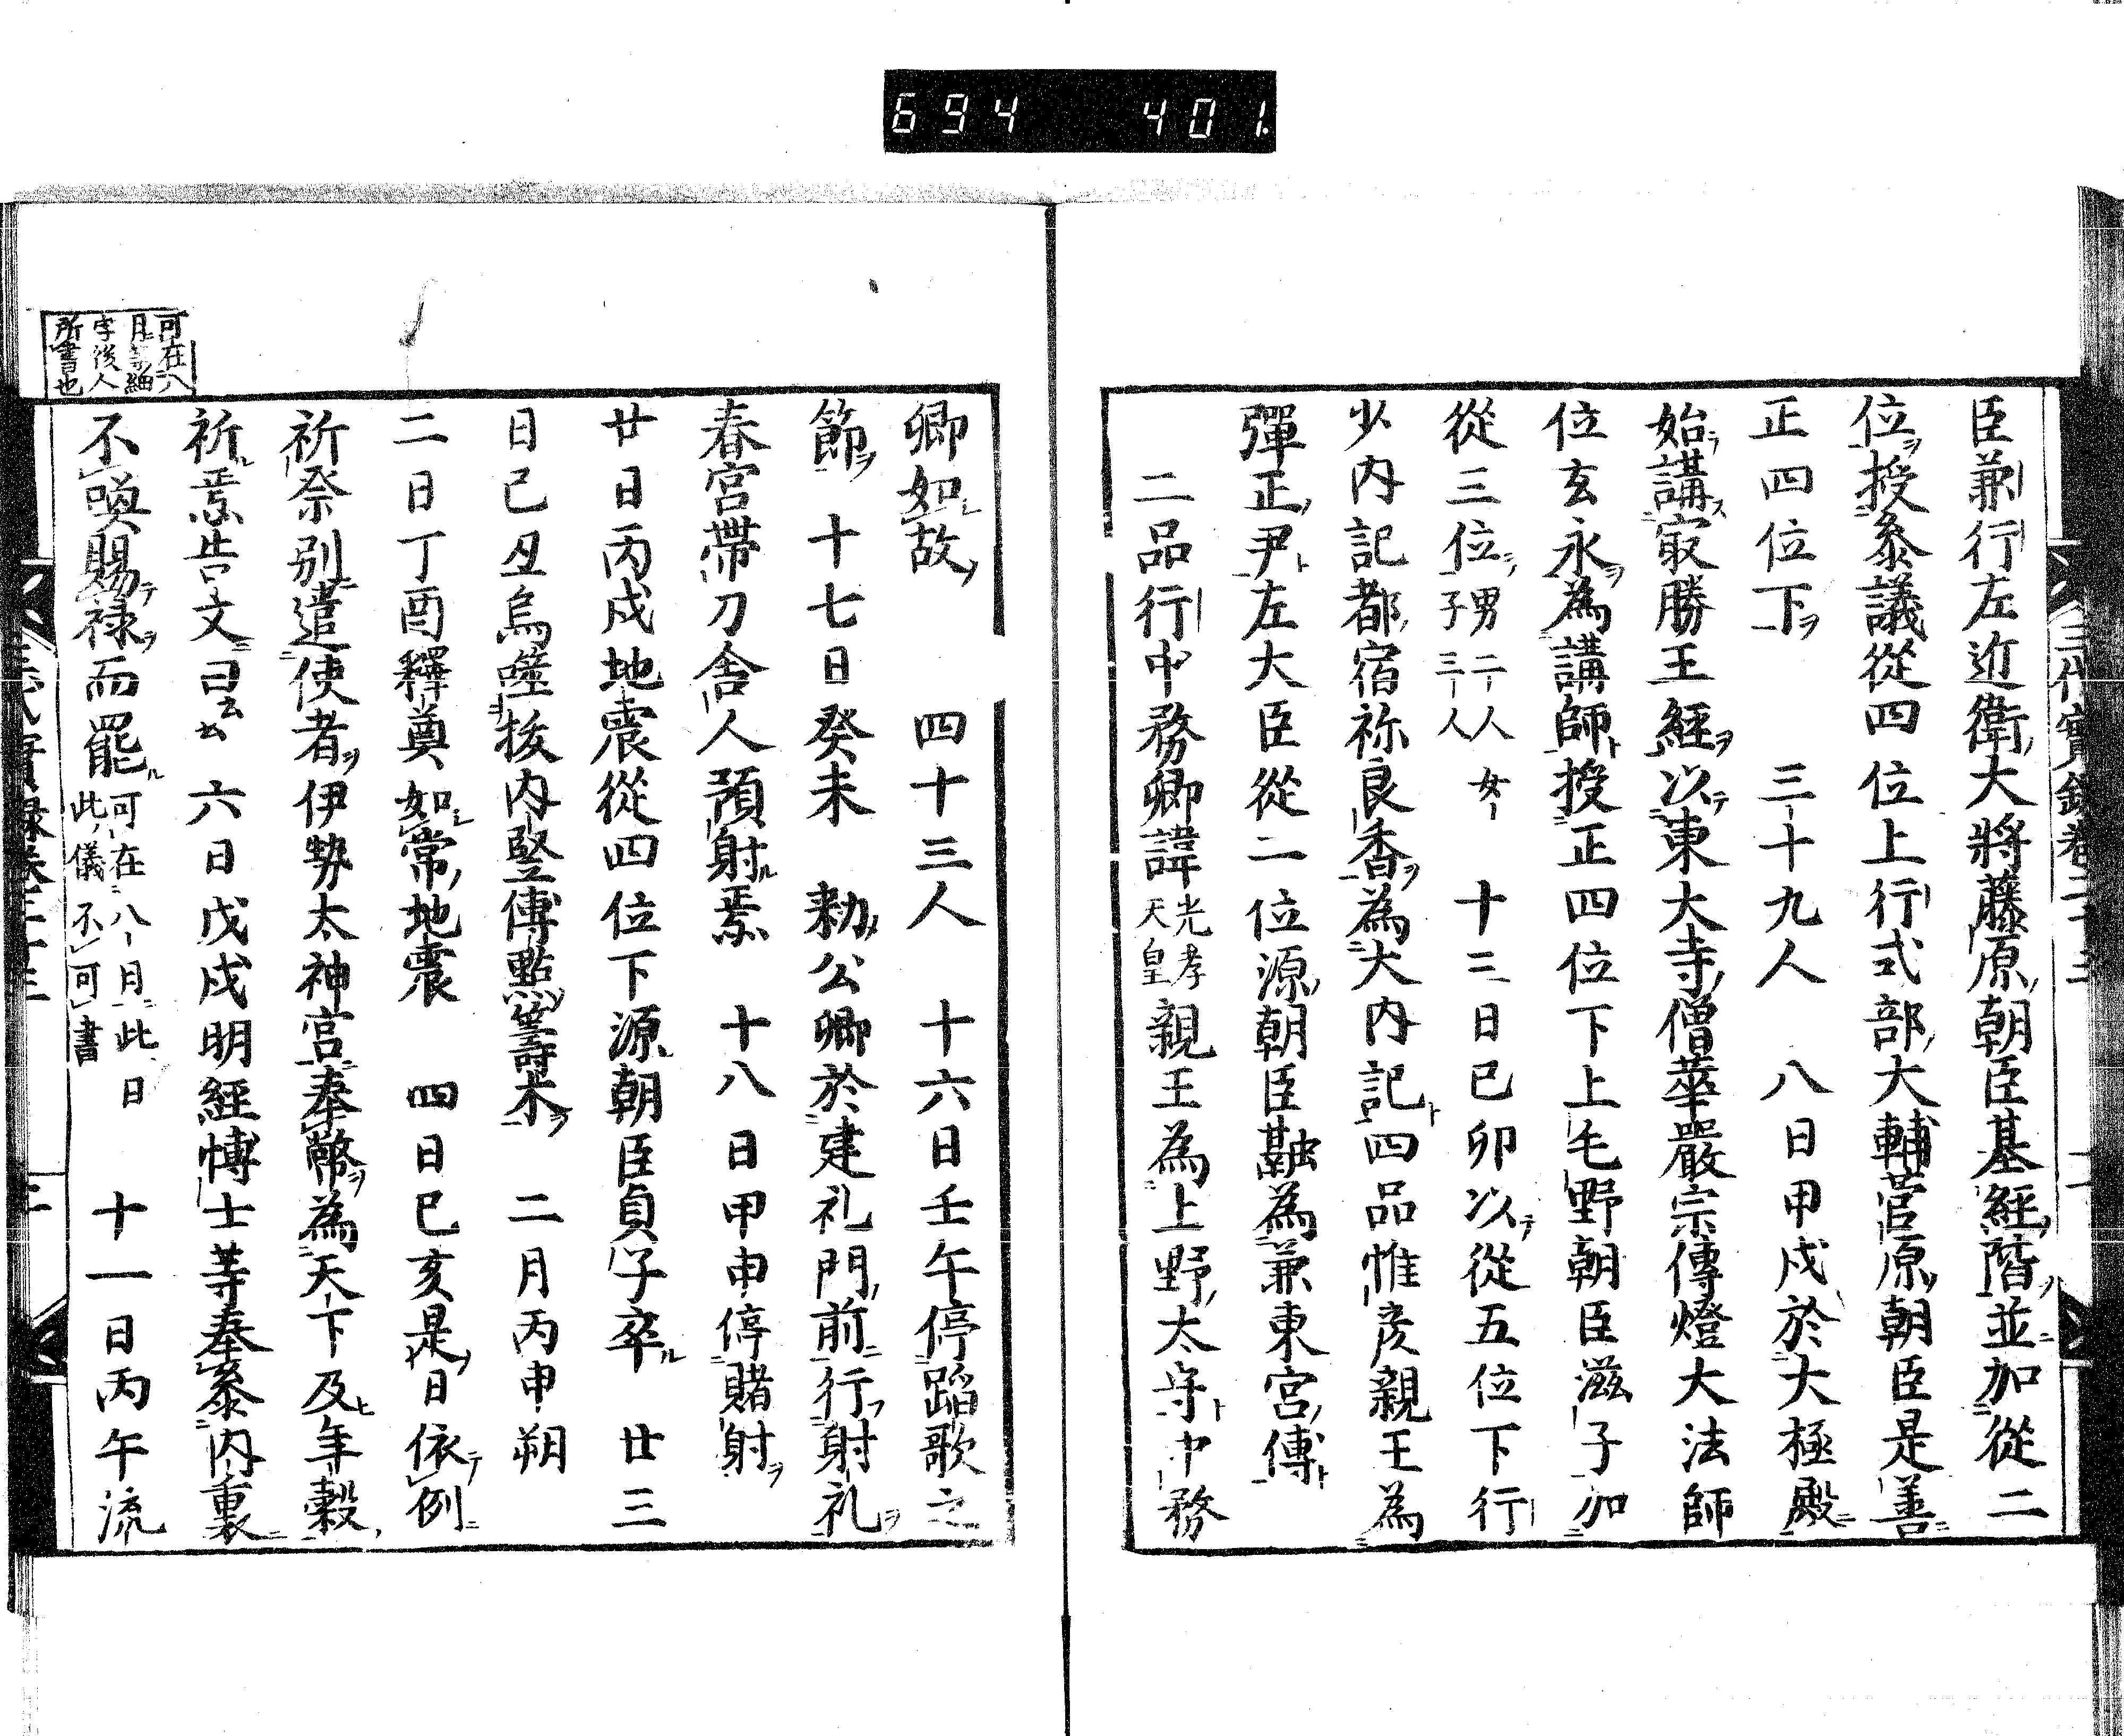 694 401.
臣兼行左近衛大將藤原朝臣基經階並加從二
位授叅議從四位上行式部大輔菅原朝臣是善
正四位下 三十九人 八日甲戌於大極殿
始講㝡勝王經以東大寺僧華嚴宗傳燈大法師
位玄永為講師授正四位下上毛野朝臣滋子加
從三位男二人女子三人 十三日己卯以從五位下行
少内記都宿祢良香為大内記四品惟彦親王為
彈正尹左大臣從二位源朝臣融為兼東宮傅
二品行中務卿諱光孝天皇親王為上野太守中務
卿如故 四十三人 十六日壬午停蹈歌之
節 十七日癸未 勅公卿於建礼門前行射礼
春宮帶刀舎人預射焉 十八日甲申停賭射
廿日丙戌地震從四位下源朝臣貞子卒 廿三
日己丑烏噬拔内竪傳點籌木 二月丙申朔
二日丁酉釋奠如常地震 四日己亥是日依例
祈祭別遣使者伊勢太神宮奉幣為天下及年穀
祈焉告文曰云云 六日戊戌明經博士等奉叅内裏
不喚賜祿而罷可在八月此日此儀不可書 十一日丙午流
可在八
月等細
字後人
所書也
三代實錄卷二十三